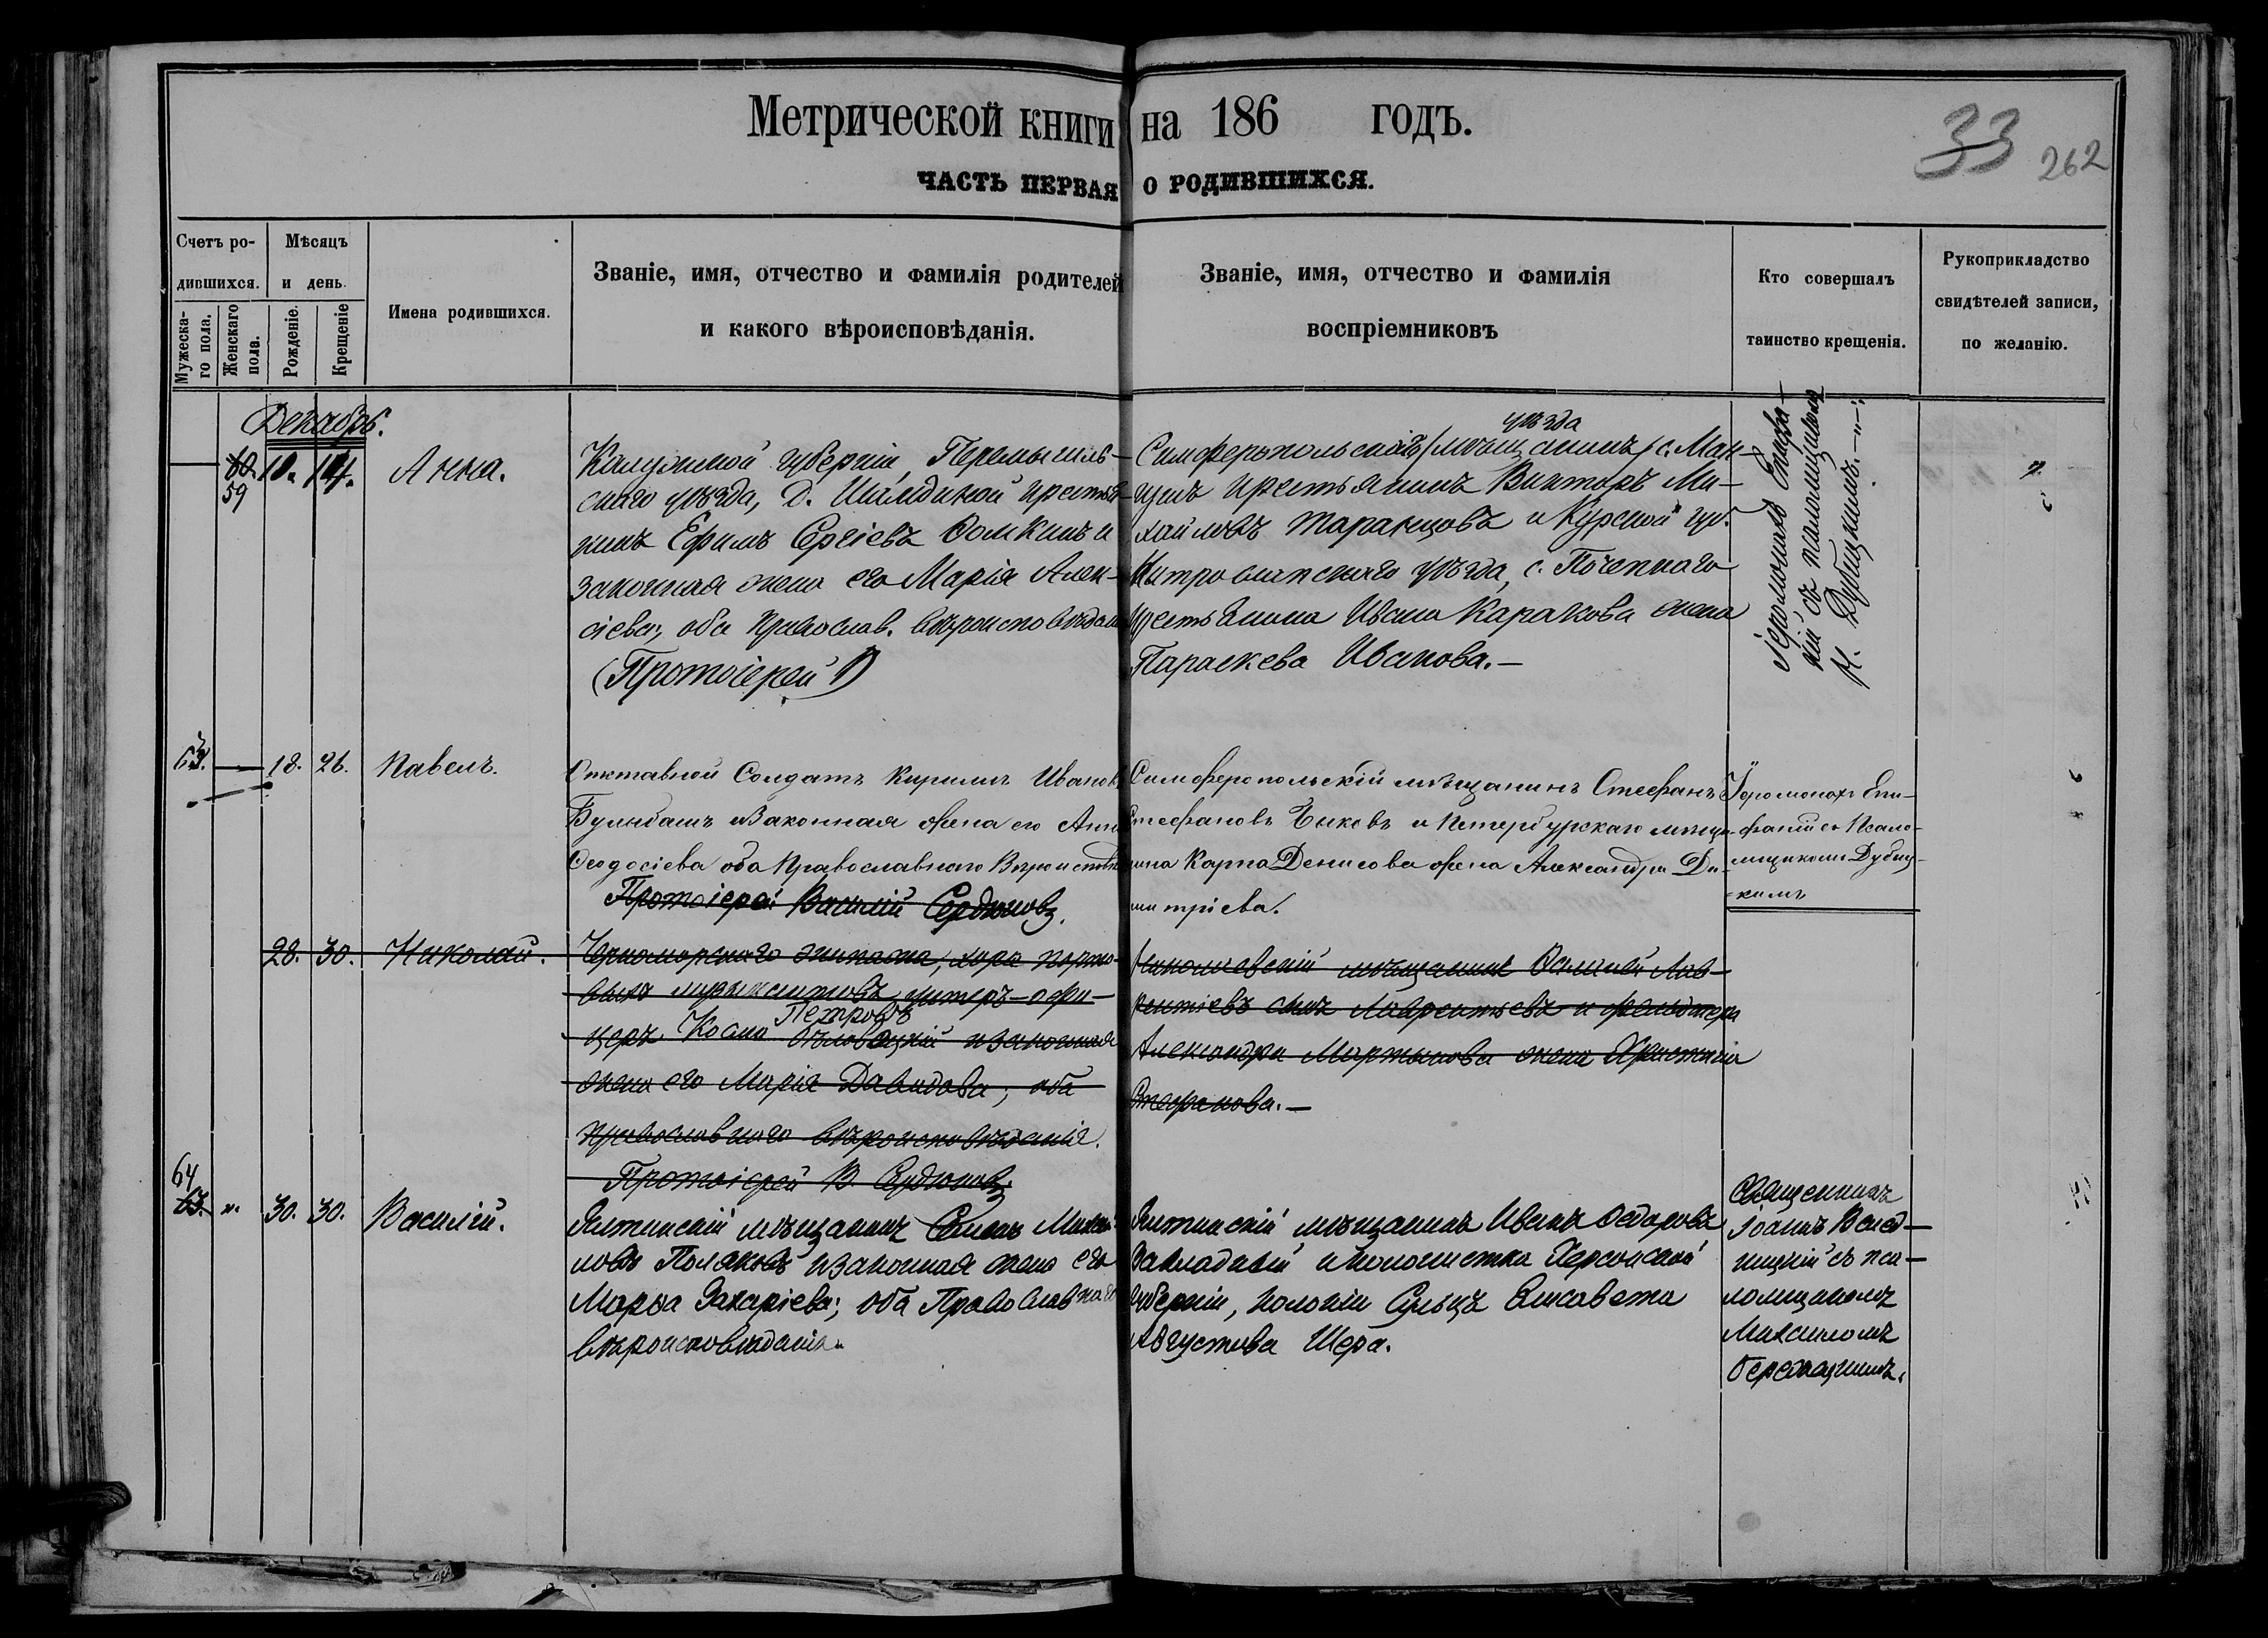 Метрической книги на 186 годъ.
33 262
ЧАСТЬ ПЕРВАЯ О РОДИВШИХСЯ.
Счетъ ро-
дившихся.
Мужеска-
го пола.
Женскаго
пола.
Мѣсяцъ
и день.
Рожденіе.
Крещеніе
Имена родившихся.
Званіе, имя, отчество и фамилія родителей
и какого вѣроисповѣданія.
Званіе, имя, отчество и фамилія
воспріемниковъ
Кто совершалъ
таинство крещенія.
Рукоприкладство
свидѣтелей записи,
по желанію.
Декабрь.
60.
59
10. 14. Анна.
Калужской губерніи, Перемышль-
скаго уѣзда, д. крестья-
нинъ Ефимъ Сергіевъ Сомкинъ и
законная жена его Марія Алек-
сіева; оба православ. вѣроисповѣдан
(Протоіерей
уѣзда
Симферопольскій мѣщанинъ с. Ман-
гушъ крестьянинъ Викторъ Ми-
хайловъ Таранцовъ и Курской губ.
Дмитровскаго уѣзда, с.
крестьянина Ивана Каракова жена
Параскева Иванова.—
Іеромонахъ Епифа-
ній съ псаломщикомъ
Н. Дубицкимъ.
63. — 18. 26. Павелъ.
Отставной Солдатъ Кирилъ Ивановъ
и Законная жена его Анна
Феодосіева оба Православнаго Вѣроисповѣ
Протоіерей Василій Сердюковъ.
Симферопольскій мѣщанинъ Стефанъ
Стефановъ Быковъ и Петербурскаго мѣща-
нина Карпа Денисова жена Александра Ди-
митріева.
Іеромонахъ Епи-
фаній съ Псало-
мщикомъ Дубиц-
кимъ
28. 30. Николай.
Черноморскаго экипажа, хора порто-
выхъ музыкантовъ унтеръ-офи-
Петровъ
церъ Косма Бѣловацкій и законная
жена его Марія Давидова; оба
православнаго вѣроисповѣданія.
Протоіерей В. Сердюковъ
Николаевскій мѣщанинъ Василій Лав-
рентіевъ сынъ Лаврентьевъ и фельдшера
Александра Мартынова жена Христинія
Стефанова.—
64
63. ". 30. 30. Василій.
Ялтинскій мѣщанинъ Семенъ Михай-
ловъ Поляковъ и законная жена его
Марѳа Захаріева; оба Православнаго
вѣроисповѣданія.
Ялтинскій мѣщанинъ Иванъ Ѳедоровъ
Закладный и колонистка Херсонской
губерніи, колоніи Сульцъ Елисавета
Августова Шера.
Священникъ
Іоаннъ
съ пса-
ломщикомъ
Михаиломъ